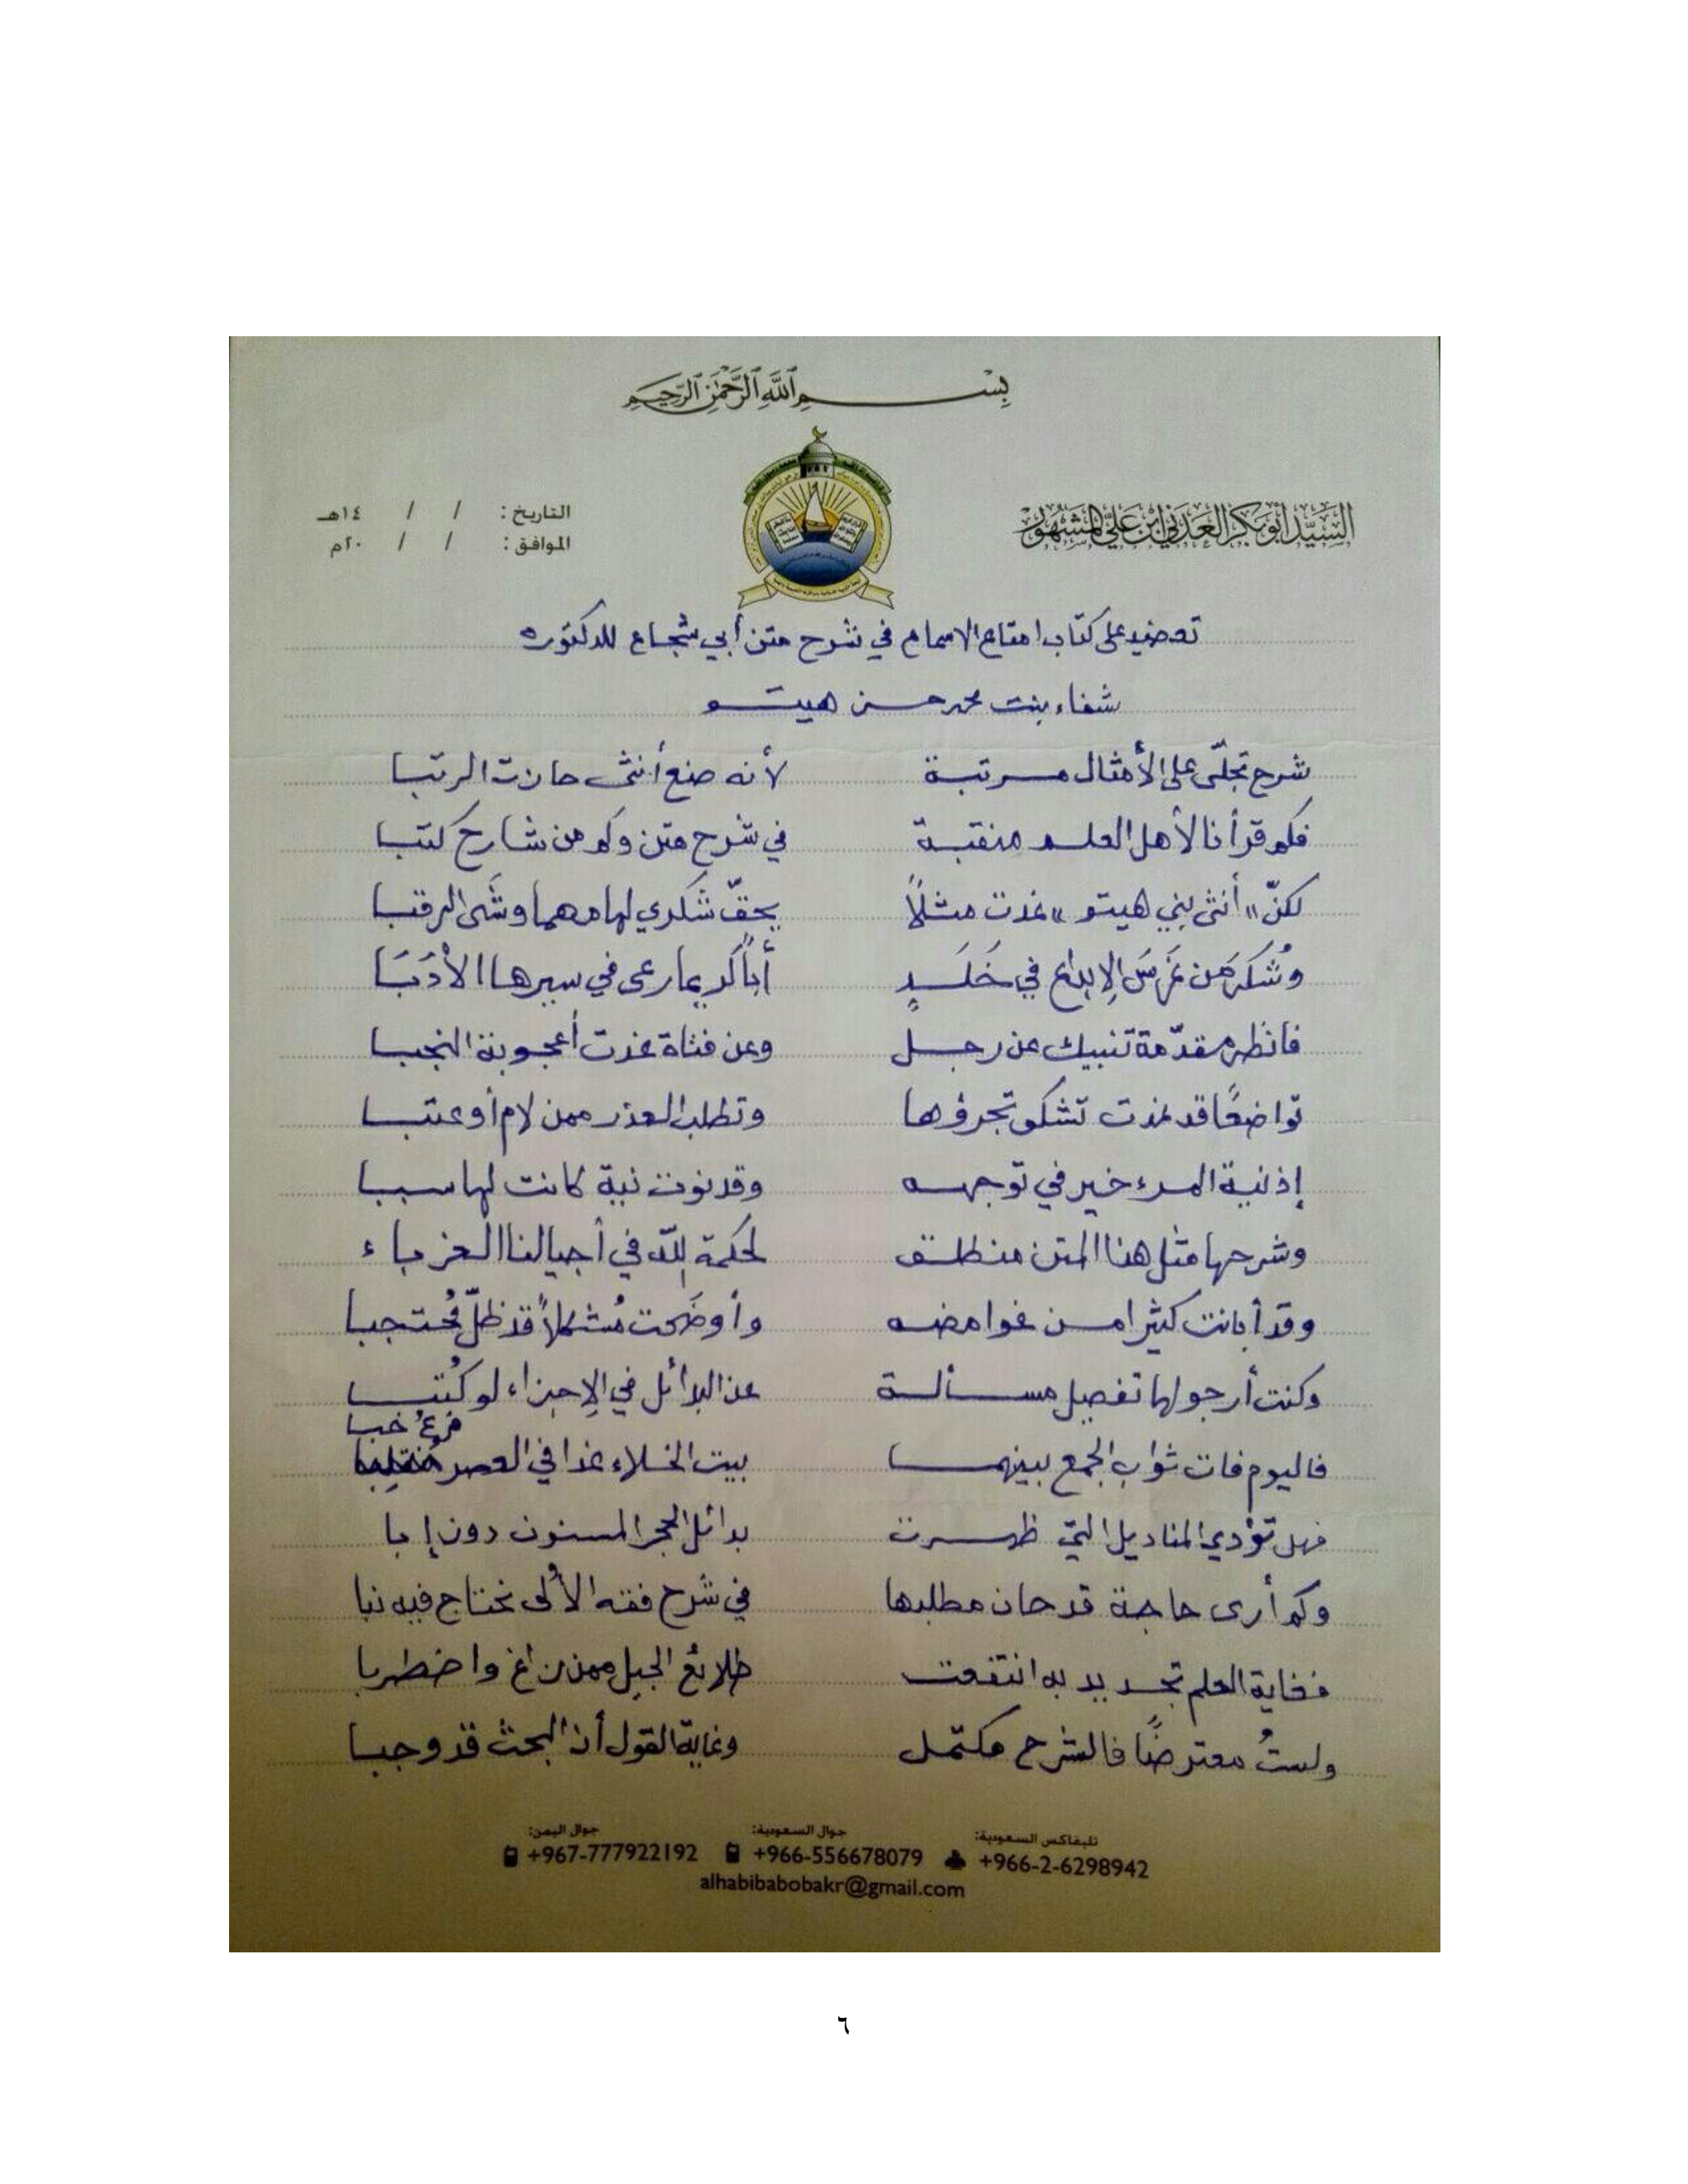 بِسْمِ اللَّهِ الرَّحْمَٰنِ الرَّحِيمِ
السيد أبوبكر العدني ابن علي المشهور
التاريخ : / / ١٤هـ
الموافق : / / ٢٠م
على كتاب امتاع الاسماع في شرح متن أبي شجاع للدكتوره
شفاء بنت محمد حسن هيتو
شرح تجلّى على الأمثال مرتبة لأنه صنع أنثى حازت الرتبا
فكم قرأنا لأهل العلم منقبة في شرح متن وكم من شارح كتبا
لكنّ "أنثى بني هيتو" غدت مثلاً يحقّ شكري لها مهما وشَى الرقبا
وشُكرَ من غرَسَ الإبداع في خَلَدٍ أباً كريما رعى في سيرها الأدَبَا
فانظر مقدّمة تنبيك عن رجل وعن فتاة غدت أعجوبة النجبا
تواضعًا قد غدت تشكو تجرؤها وتطلب العذر ممن لام أو عتبا
إذ نية المرء خير في توجهه وقد نوت نية كانت لها سببا
وشرحها مثل هذا المتن منطلق لحكمة الله في أجيالنا الغرباء
وقد أبانت كثيرا من غوامضه وأوضحت مُشكلاً قد ظلّ مُحتجبا
وكنت أرجو لها تفصيل مسألة عن البدائل في الإجزاء لو كُتبا
فرعُ خبا
فاليوم فات ثواب الجمع بينهما بيت الخلاء غدا في العصر
فهل تؤدي المناديل التي ظهرت بدائل الحجر المسنون دون إبا
وكم أرى حاجة قد حان مطلبها في شرح فقه الألى نحتاج فيه نبا
فغاية العلم تجديد به انتفعت طلائع الجيل ممن زاغ واضطربا
ولستُ معترضًا فالشرح مكتمل وغاية القول أن البحث قد وجبا
تليفاكس السعودية: جوال السعودية: جوال اليمن:
+966-2-6298942 +966-556678079 +967-777922192
alhabibabobakr@gmail.com
٦